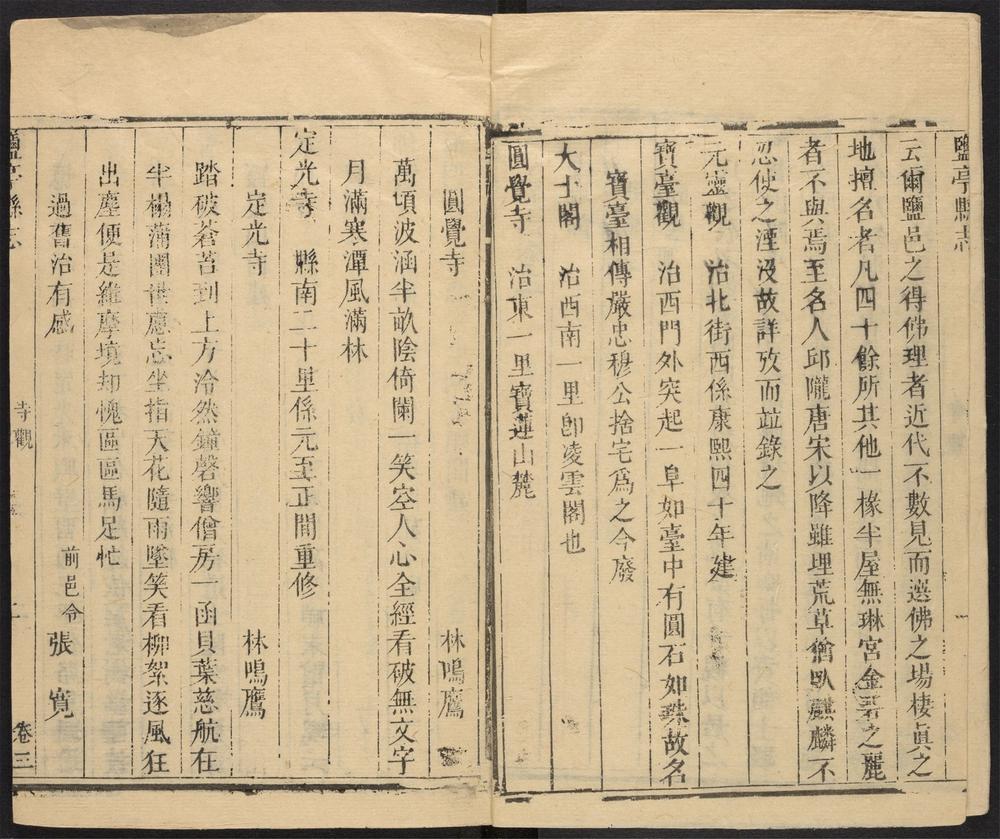 鹽亭縣志
云爾鹽邑之得佛理者近代不數見而選佛之場棲眞之
地擅名者凡四十餘所其他一椽半屋無琳宮金碧之麗
者不與焉至名人邱隴唐宋以降雖埋荒草猶臥麒麟不
忍使之湮沒故詳攷而竝錄之
元靈觀 治北街西係康熙四十年建
寶臺觀 治西門外突起一阜如臺中有圓石如珠故名
寶臺相傳嚴忠穆公捨宅爲之今廢
大士閣 治西南一里卽凌雲閣也
圓覺寺 治東一里寶蓮山麓
圓覺寺 林鳴鷹
萬頃波涵半畝陰倚闌一笑空人心全經看破無文字
月滿寒潭風滿林
定光寺 縣南二十里係元至正間重修
定光寺 林鳴鷹
踏破蒼苔到上方泠然鐘磬響僧房一函貝葉慈航在
半榻蒲團世慮忘坐指天花隨雨墜笑看柳絮逐風狂
出塵便是維摩境却愧區區馬足忙
過舊治有感 前邑令 張寬
鹽亭縣志 寺觀 二 卷三